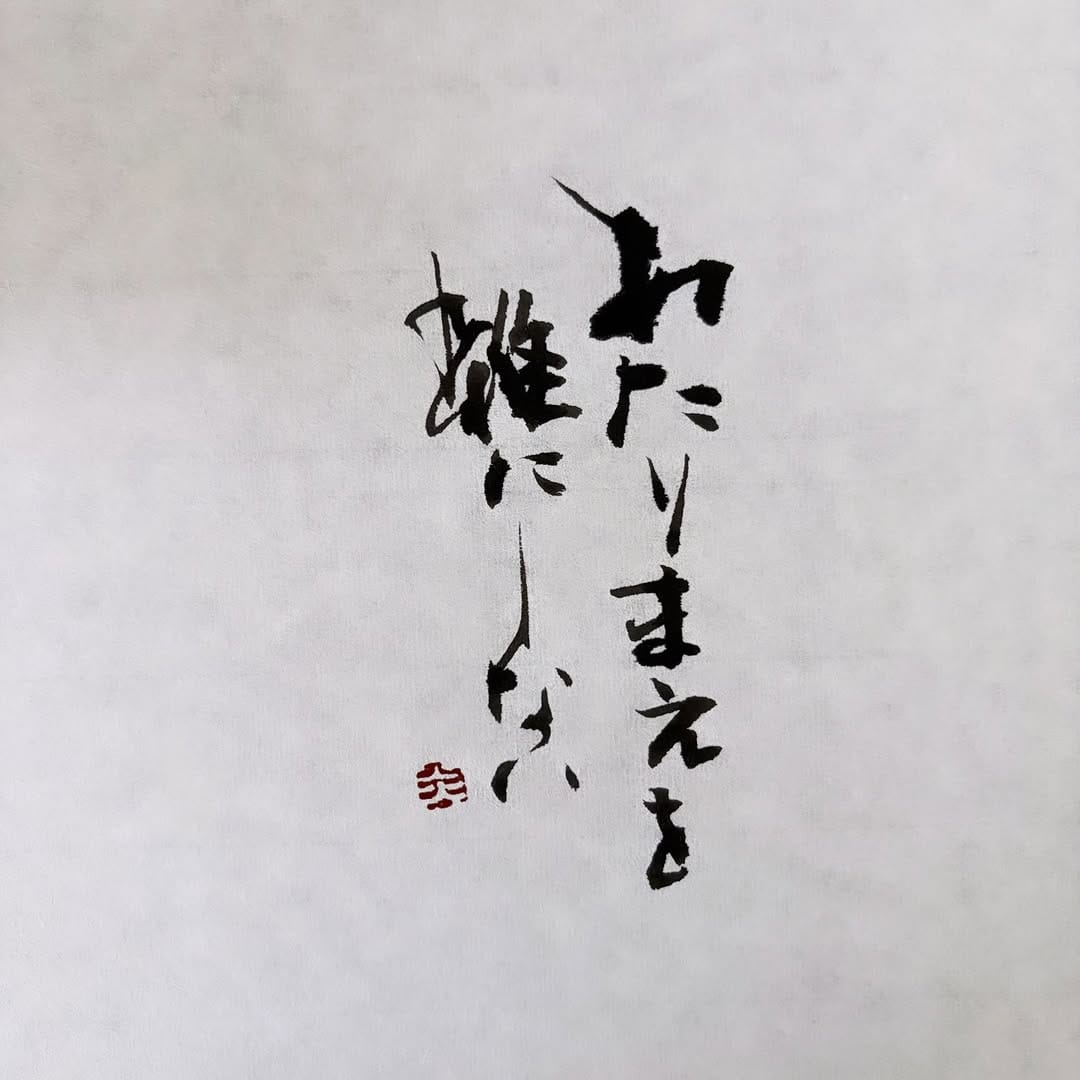 あたりまえを
雑にしない